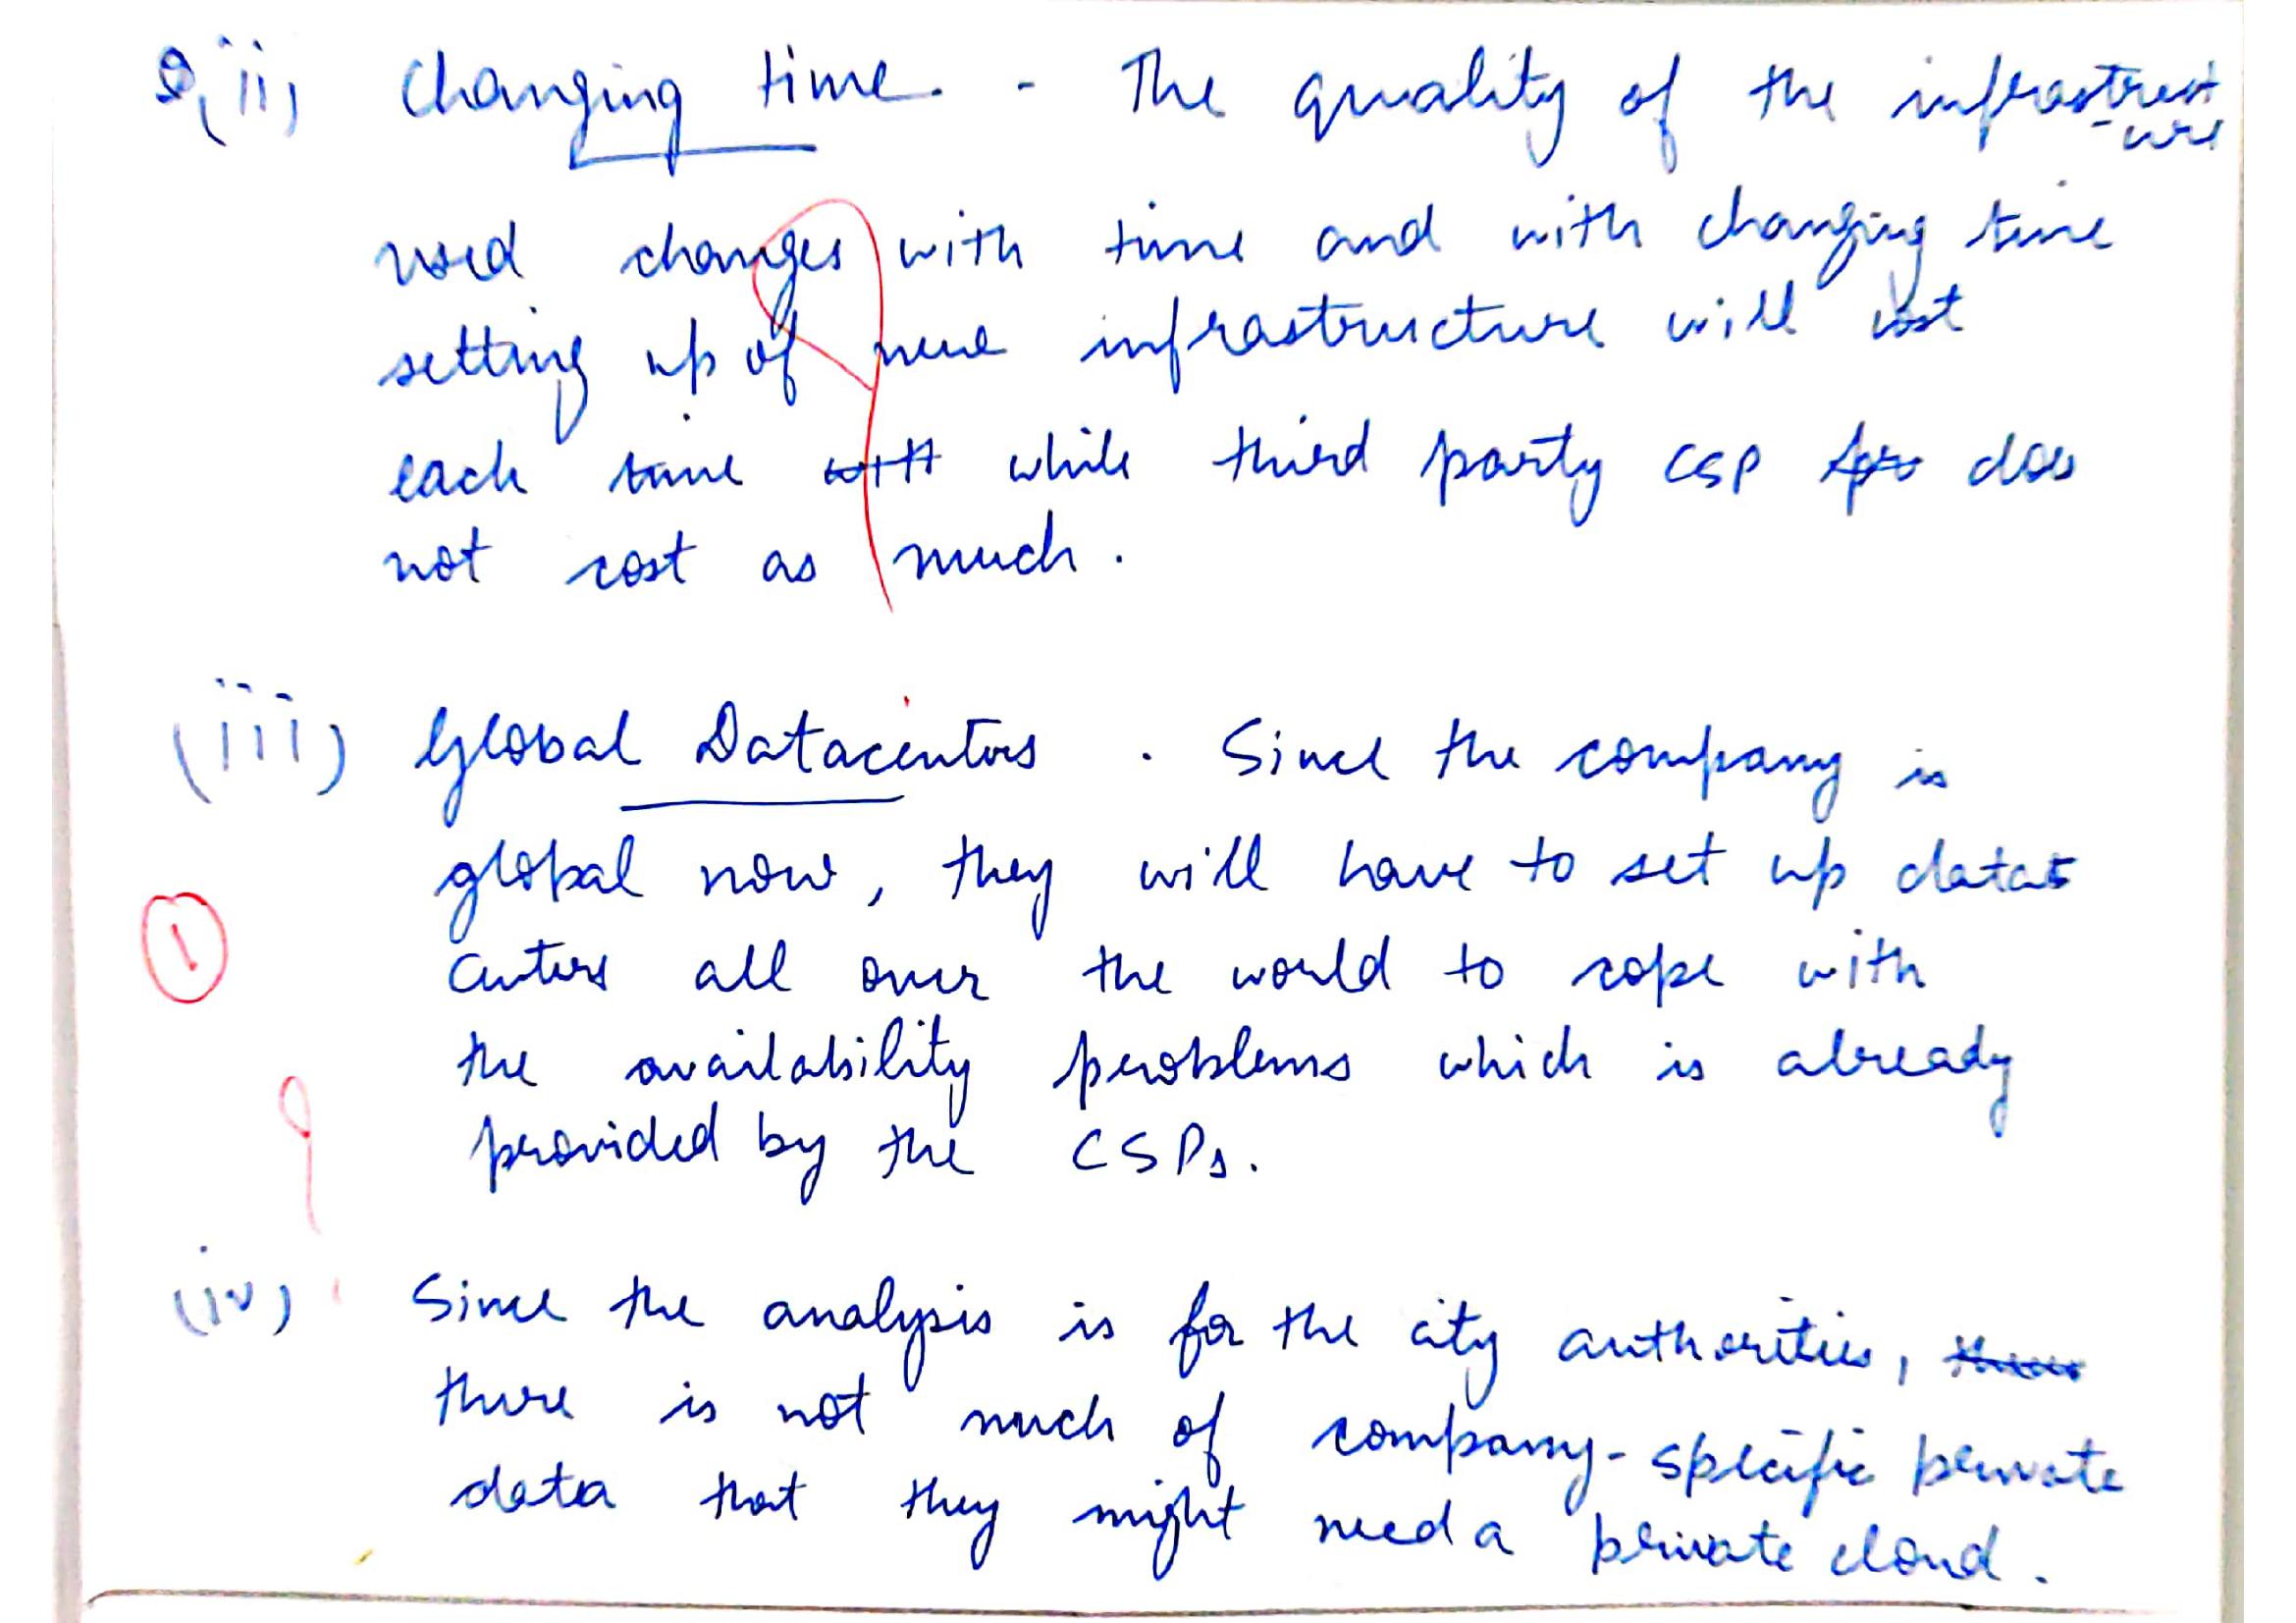 Q(ii) Changing time. - The quality of the infrastruct
-ure
used changes with time and with changing time
setting up of new infrastructure will cost
each time while third party CSP does
not cost as much.
(iii) Global Datacenters . Since the company is
global now, they will have to set up data
centers all over the world to cope with
① the availability problems which is already
provided by the CSPs.
(iv) Since the analysis is for the city authorities,
there is not much of company-specific private
data that they might need a private cloud.